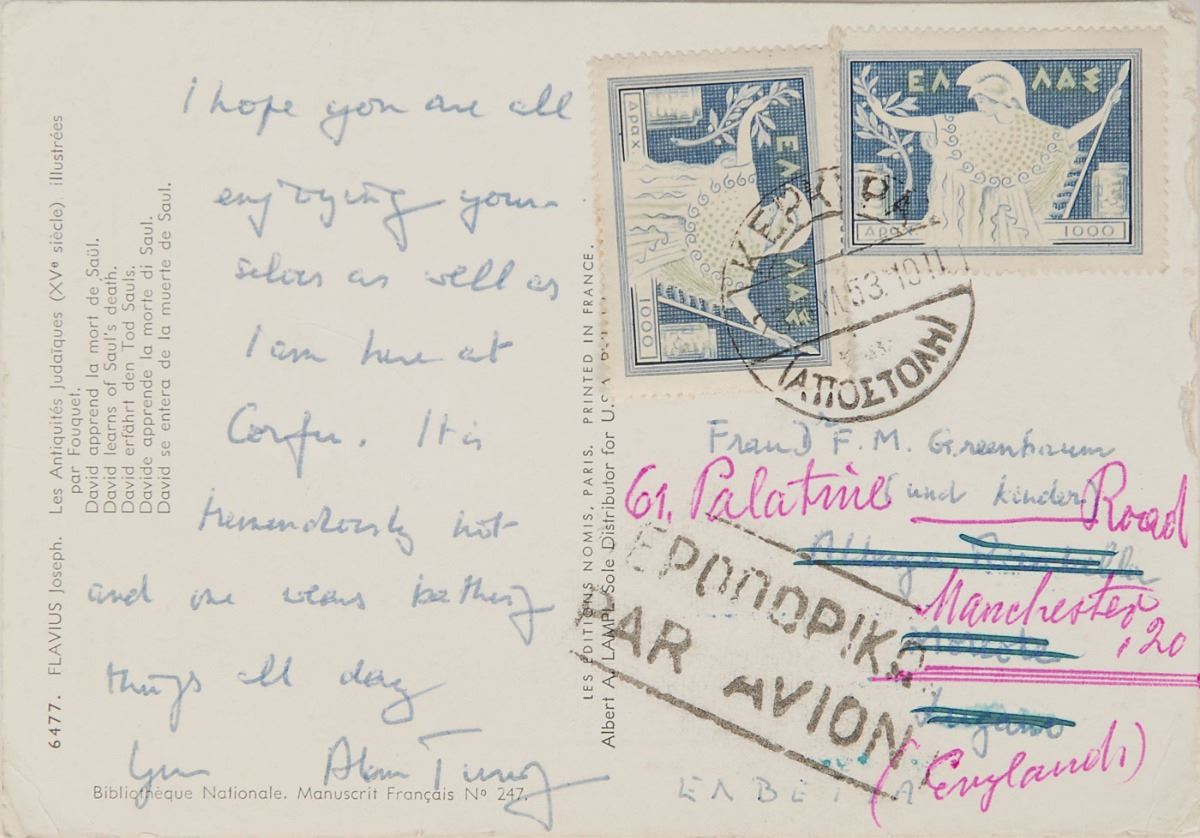 6477. FLAVIUS Joseph. Les Antiquités Judaïques (XVe siècle) illustrées
par Fouquet.
David apprend la mort de Saül.
David learns of Saul's death.
David erfährt den Tod Sauls.
Davide apprende la morte di Saul.
David se entera de la muerte de Saul.
I hope you are all
enjoying your-
selves as well as
I am here at
Corfu. It is
tremendously hot
and one wears bathing
things all day
Yours Alan Turing
Bibliothèque Nationale. Manuscrit Français No 247.
LES EDITIONS NOMIS, PARIS. PRINTED IN FRANCE.
Albert A. LAMPL, Sole Distributor for U.S.A.
ΕΛΛΑΣ
Δραχ 1000
ΕΛΛΑΣ
Δραχ 1000
ΚΕΡΚΥΡΑ
53.10
(ΑΠΟΣΤΟΛΗ)
F. M. Greenbaum
(und kinder)
61, Palatine Road
Manchester, 20
(England)
ΕΡΟΠΟΡΙΚΩ
PAR AVION